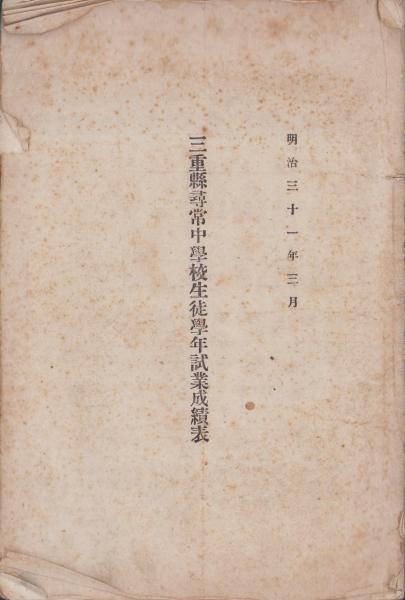 明治三十一年三月
三重縣尋常中學校生徒學年試業成績表